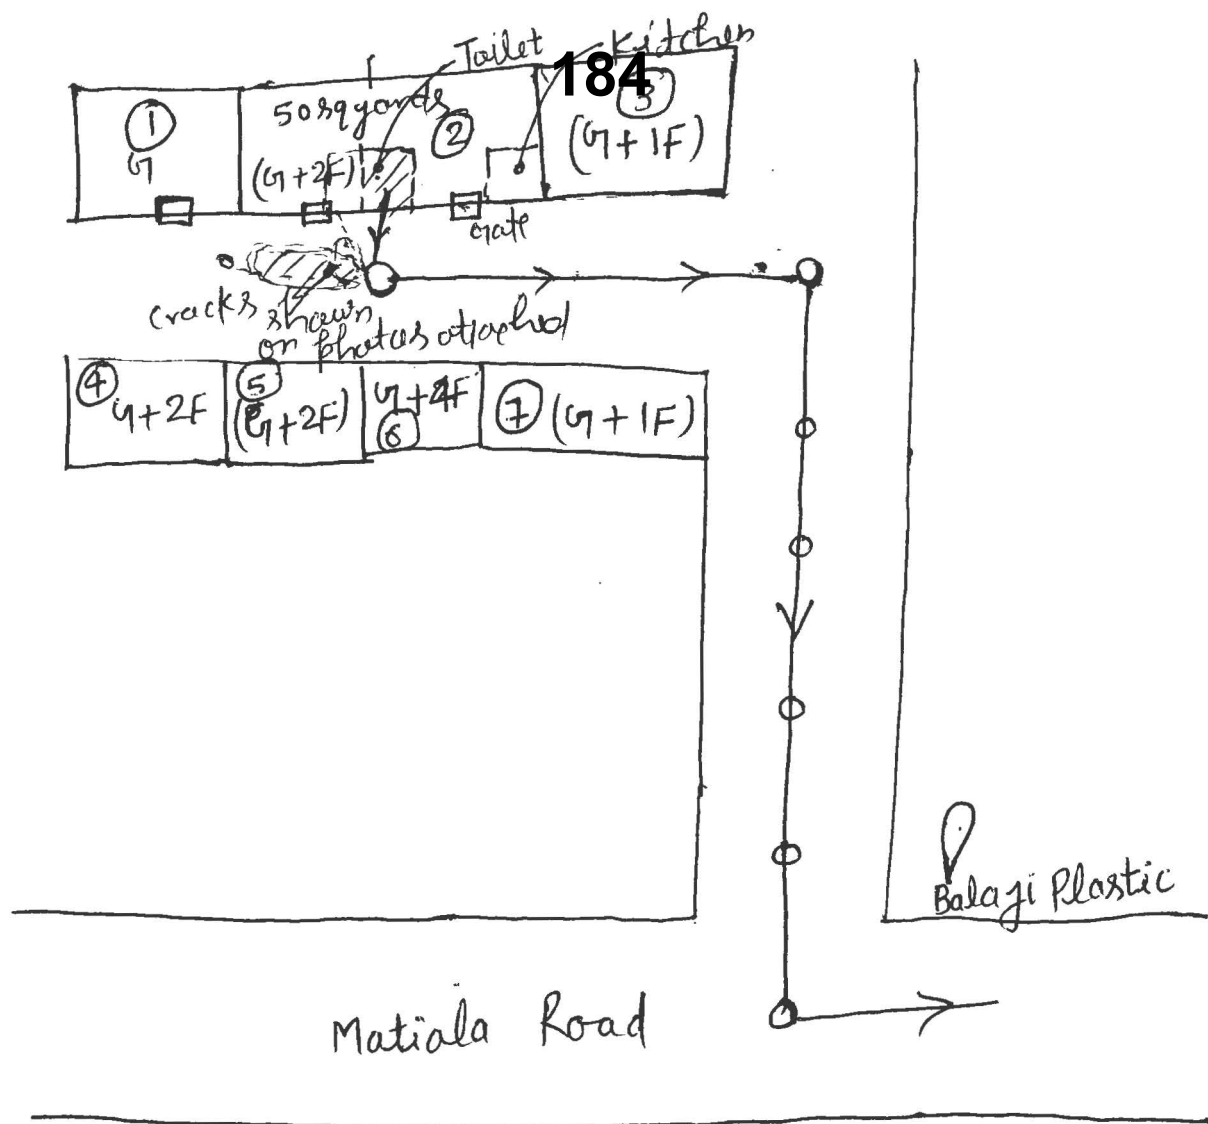 Toilet
Kitchen
184
1
G
50 sq yards
2
(G+2F)
3
(G+1F)
Gate
cracks shown
on photos attached
4
G+2F
5
(G+2F)
G+4F
6
7 (G+1F)
Balaji Plastic
Matiala Road